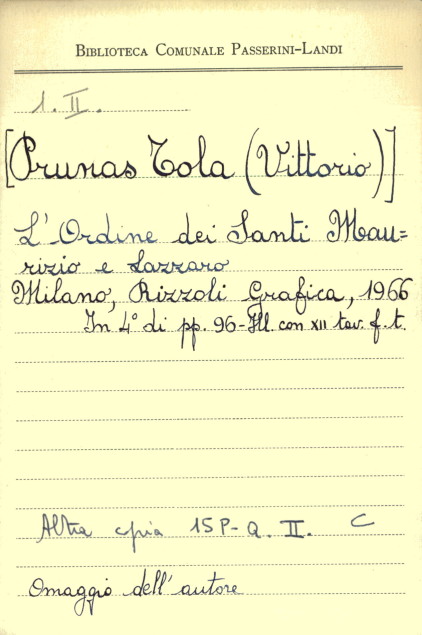 BIBLIOTECA COMUNALE PASSERINI-LANDI
1. II.
[Prunas Tola (Vittorio)]
L'Ordine dei Santi Mau=
rizio e Lazzaro
Milano, Rizzoli Grafica, 1966
In 4° di pp. 96 - Ill. con XII tav. f. t.
Altra copia 15P-Q. II. C
Omaggio dell'autore